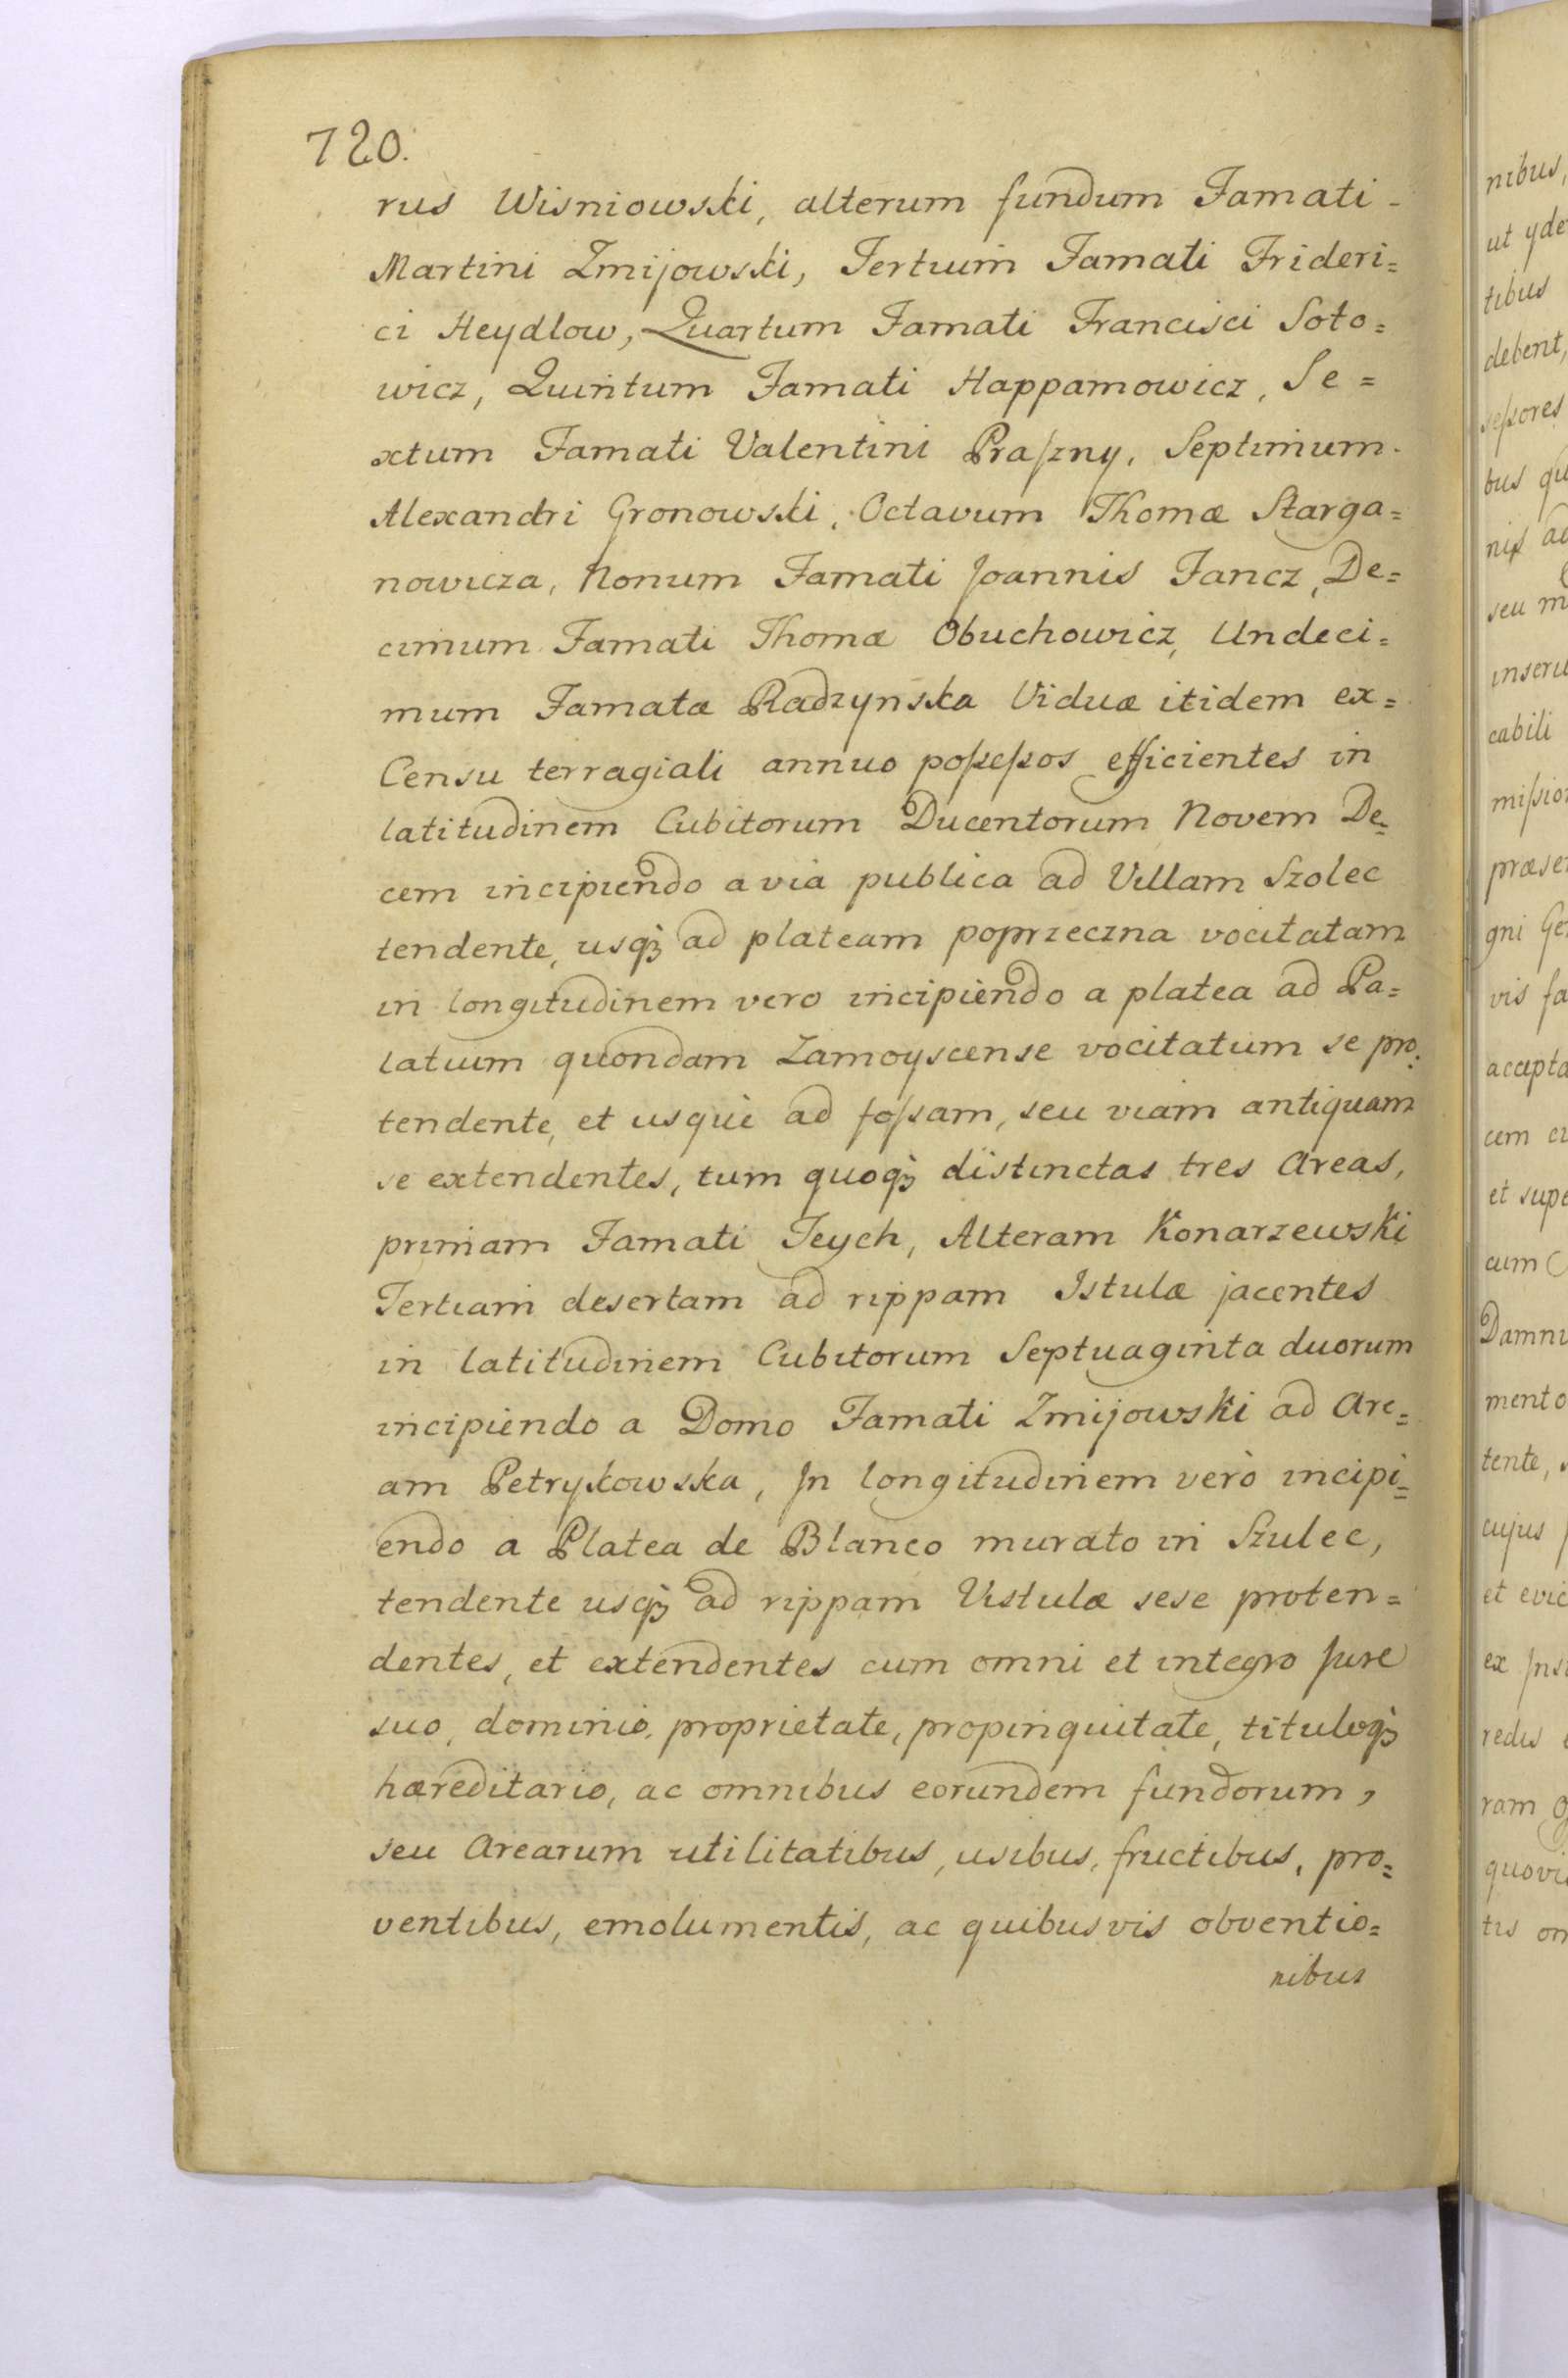 720.
rus Wisniowski, alterum fundum Famati -
Martini Zmijowski, Tertium Famati Frideri=
ci Heydlow, Quartum Famati Francisci Soto=
wicz, Quintum Famati Happamowicz, Se=
xtum Famati Valentini Praſzny, Septimum
Alexandri Gronowski, Octavum Thomæ Starga=
nowicza, Nonum Famati Joannis Fancz, De=
cimum Famati Thomæ Obuchowicz, Undeci=
mum Famatæ Radzynska Viduæ itidem ex=
Censu terragiali annuo poſseſsos efficientes in
latitudinem Cubitorum Ducentorum Novem De=
cem incipiendo a via publica ad Villam Szolec
tendente, usqꝫ ad plateam poprzeczna vocitatam
in longitudinem vero incipiendo a platea ad Pa=
latium quondam Zamoyscense vocitatum se pro=
tendente, et usque ad foſsam, seu viam antiquam
se extendentes, tum quoqꝫ distinctas tres Areas,
primam Famati Teych, Alteram Konarzewski
Tertiam desertam ad rippam Istulæ jacentes
in latitudinem Cubitorum Septuaginta duorum
incipiendo a Domo Famati Zmijowski ad Are=
am Petrykowska, In longitudinem verò incipi=
endo a Platea de Blanco murato in Szulec,
tendente usqꝫ ad rippam Vistulæ sese proten=
dentes, et extendentes cum omni et integro Jure
suo, dominio, proprietate, propinquitate, tituloqꝫ
hæreditario, ac omnibus eorundem fundorum,
seu Arearum utilitatibus, usibus, fructibus, pro=
ventibus, emolumentis, ac quibusvis obventio=
nibus
nibus,
ut yde
tibus
debent,
seſsores
bus qu
seu m
inseru
cabili
miſsio
præse
gni Ge
vis fa
accepta
cem
et supe
cum
Damni
mento
tente,
cujus
et evic
ex Ins
redis
ram
quovi
tis om